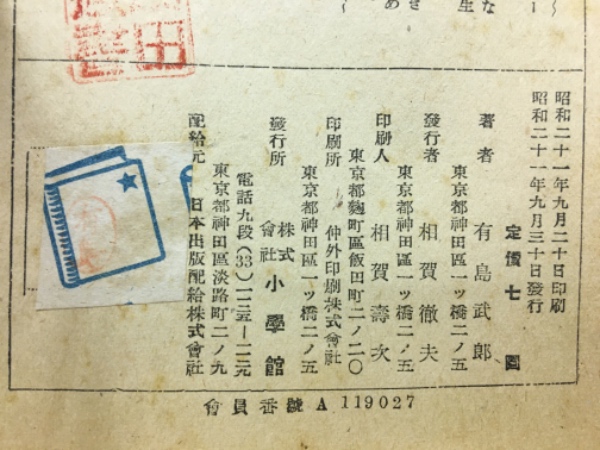 昭和二十一年九月二十日印刷
昭和二十一年九月三十日發行
定價七圓
著者 有島武郎
東京都神田區一ッ橋二ノ五
發行者 相賀徹夫
東京都神田區一ッ橋二ノ五
印刷人 相賀壽次
東京都麴町區飯田町二ノ二〇
印刷所 仲外印刷株式會社
東京都神田區一ッ橋二ノ五
發行所 株式會社 小學館
電話九段(33)
東京都神田區淡路町二ノ九
配給元 日本出版配給株式會社
會員番號 A 119027